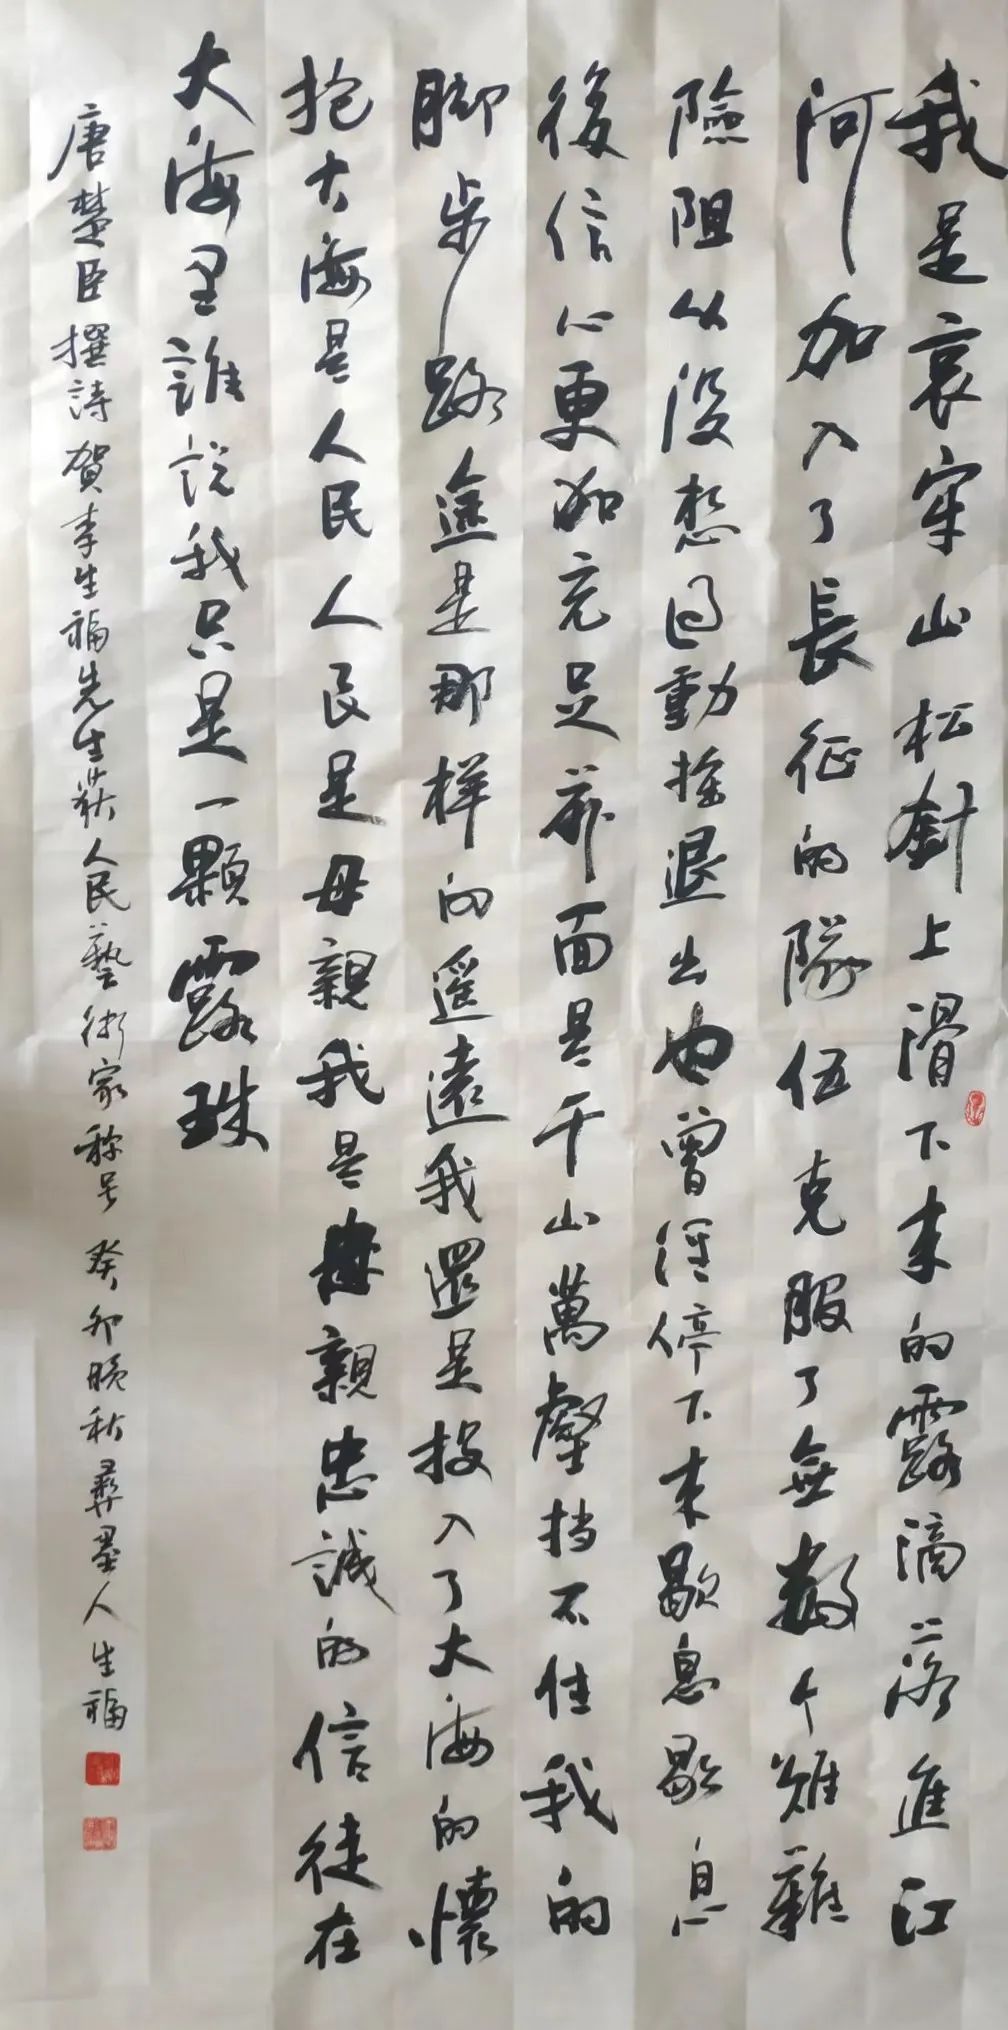 我是哀牢山松針上滑下来的露滴滴落進江
河加入了長征的隊伍克服了無數个艱難
險阻从没想過動摇退出也曾經停下来歇息歇息
後信心更加充足前面是千山萬壑挡不住我的
脚步路途是那样的遥遠我還是投入了大海的懷
抱大海是人民人民是母親我是母親忠誠的信徒在
大海里誰説我只是一顆露珠
唐楚臣撰詩賀李生福先生获人民藝術家称号 癸卯晚秋彝墨人生福